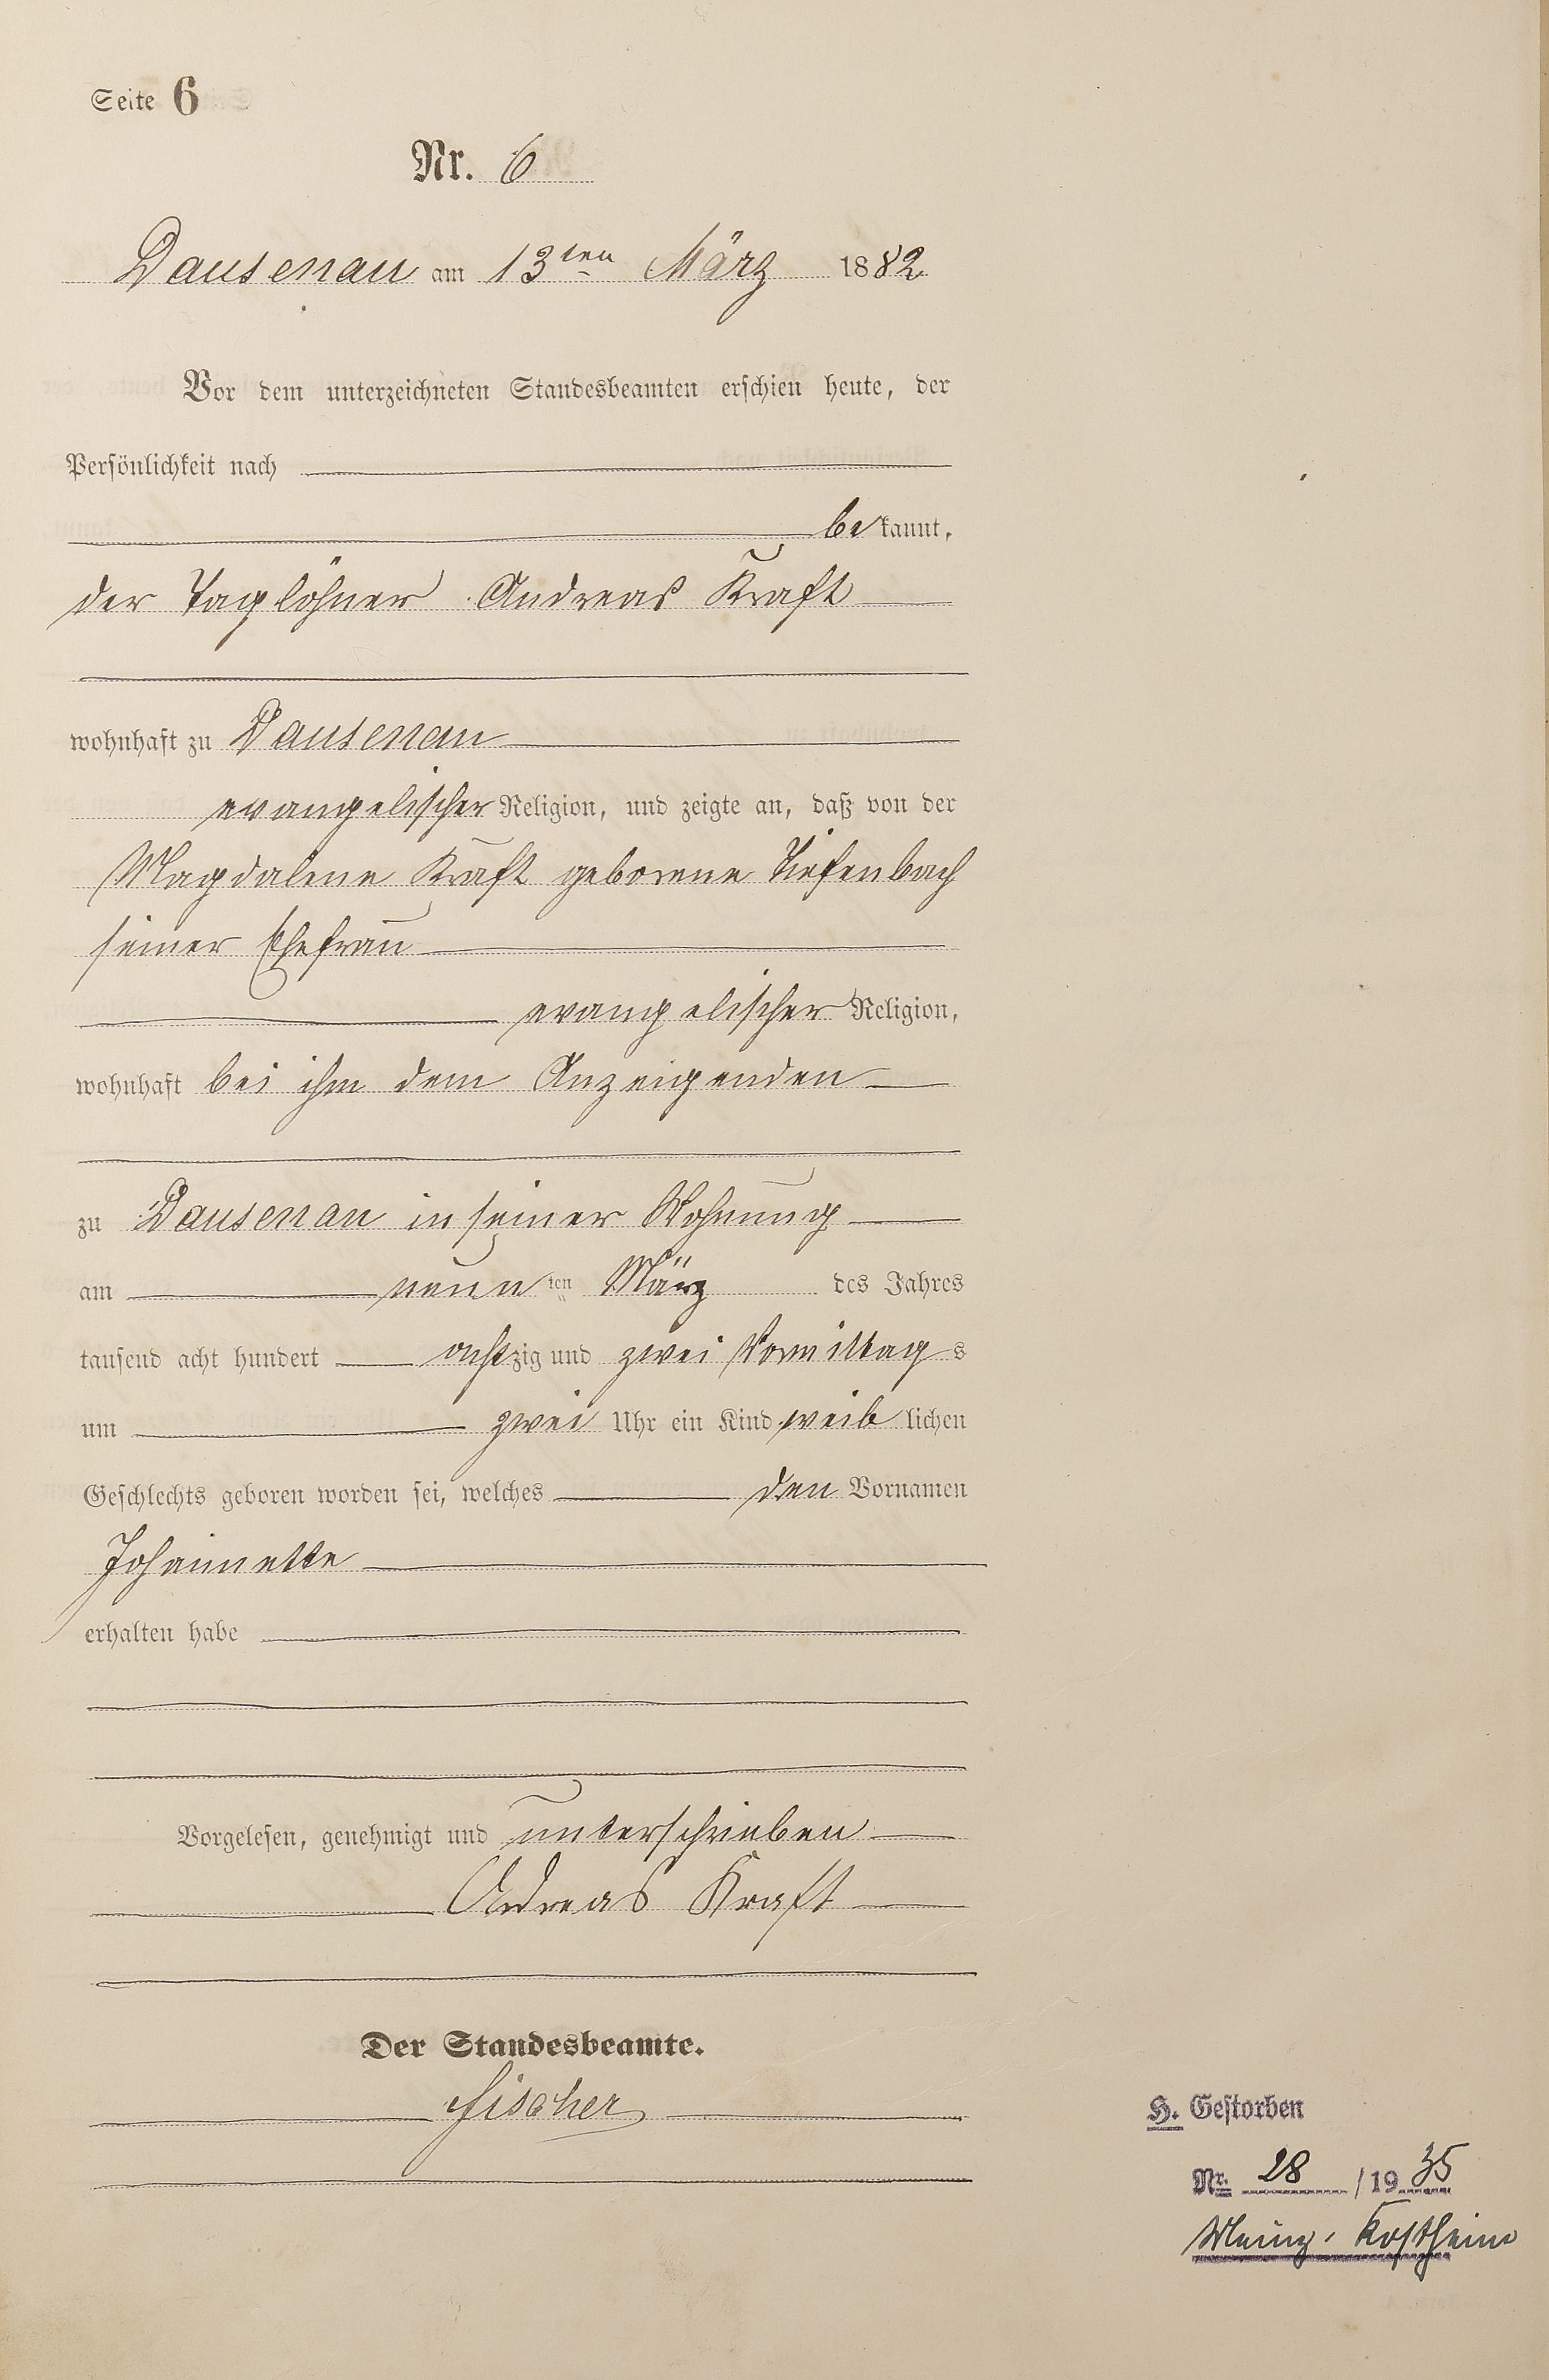 Seite 6
Nr. 6
Dausenau am 13ten März 1882
Vor dem unterzeichneten Standesbeamten erschien heute, der
Persönlichkeit nach
bekannt,
der Taglöhner Andreas Kraft
wohnhaft zu Dausenau
evangelischer Religion, und zeigte an, daß von der
Magdalene Kraft geborene Tiefenbach
seiner Ehefrau
evangelischer Religion,
wohnhaft bei ihm dem Anzeigenden
zu Dausenau in seiner Wohnung
am neunten März des Jahres
tausend acht hundert achtzig und zwei Vormittags
um zwei Uhr ein Kind weiblichen
Geschlechts geboren worden sei, welches den Vornamen
Johannette
erhalten habe
Vorgelesen, genehmigt und unterschrieben
Andreas Kraft
Der Standesbeamte.
Fischer
H. Gestorben
Nr. 28 /1935
Mainz-Kostheim